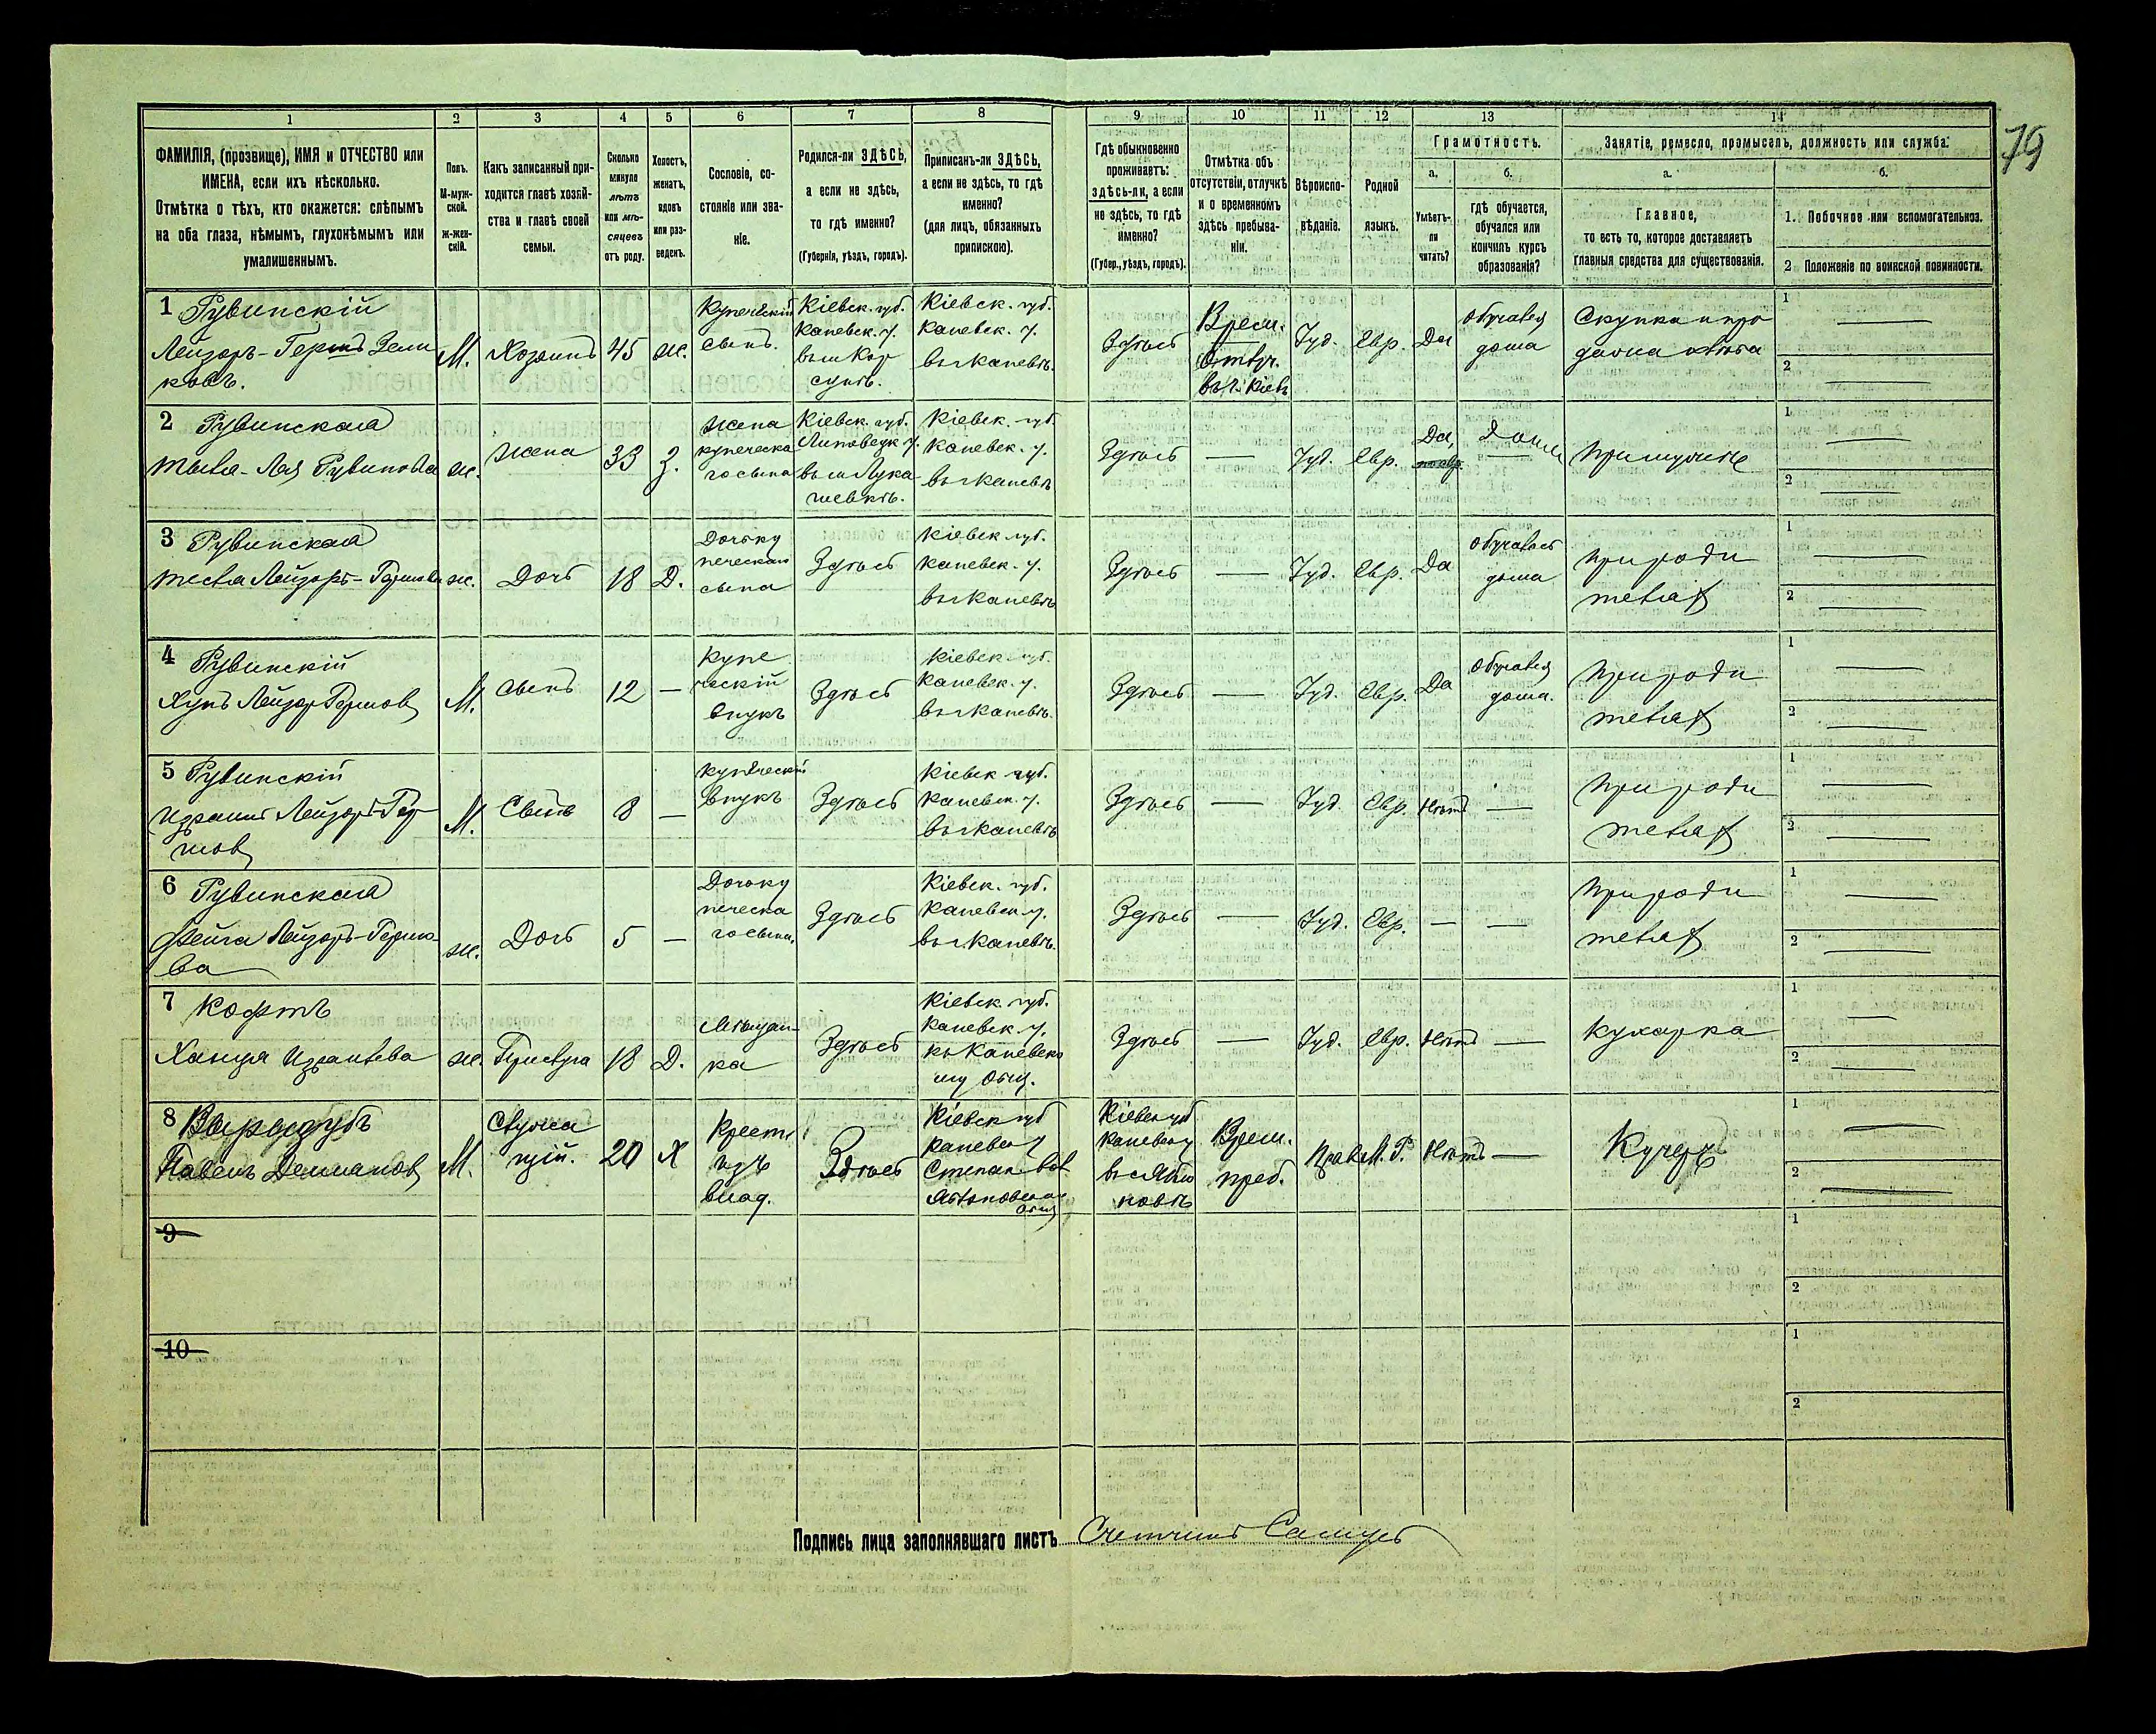 79
1 2 3 4 5 6 7 8 9 10 11 12 13 14
ФАМИЛІЯ, (прозвище), ИМЯ и ОТЧЕСТВО или
ИМЕНА, если ихъ нѣсколько.
Отмѣтка о тѣхъ, кто окажется: слѣпымъ
на оба глаза, нѣмымъ, глухонѣмымъ или
умалишеннымъ.
Полъ.
М-муж-
ской.
Ж-жен-
скій.
Какъ записанный при-
ходится главѣ хозяй-
ства и главѣ своей
семьи.
Сколько
минуло
лѣтъ
или мѣ-
сяцевъ
отъ роду.
Холостъ,
женатъ,
вдовъ
или раз-
веденъ.
Сословіе, со-
стояніе или зва-
ніе.
Родился-ли ЗДѢСЬ,
а если не здѣсь,
то гдѣ именно?
(Губернія, уѣздъ, городъ).
Приписанъ-ли ЗДѢСЬ,
а если не здѣсь, то гдѣ
именно?
(для лицъ, обязанныхъ
припискою).
Гдѣ обыкновенно
проживаетъ:
здѣсь-ли, а если
не здѣсь, то гдѣ
именно?
(Губер., уѣздъ, городъ).
Отмѣтка объ
отсутствіи, отлучкѣ
и о временномъ
здѣсь пребыва-
ніи.
Вѣроиспо-
вѣданіе.
Родной
языкъ.
Грамотность.
а.
Умѣетъ-
ли
читать?
б.
гдѣ обучается,
обучался или
кончилъ курсъ
образованія?
Занятіе, ремесло, промыселъ, должность или служба.
а.
Главное,
то есть то, которое доставляетъ
главныя средства для существованія.
б.
1. Побочное или вспомогательное.
2 Положеніе по воинской повинности.
1 Рувинскій
Лейзоръ-Гершъ Зели
ковъ.
М.
Хозяинъ
45
ж.
Купеческій
сынъ.
Кіевск. губ.
Каневск. у.
въ м Кор
сунѣ.
Кіевск. губ.
Каневск. у.
въ г Каневѣ.
Здѣсь
Врем.
Отлуч.
въ г. Кіевъ
Іуд.
Евр.
Да
обучался
дома
Скупка и про
дажа хлѣба
1
2
2 Рувинская
Рувинова
ж.
жена
33
З.
Жена
купеческа
го сына
Кіевск. губ.
Липовецк у.
въ м Лука
шевкѣ.
Кіевск. губ.
Каневск. у.
въ г Каневѣ
Здѣсь
—
Іуд.
Евр.
Да,
дома
При мужѣ
1
2
3 Рувинская
Лейзоръ-Гершова
ж.
Дочь
18
Д.
Дочь ку
печескаго
сына
Здѣсь
Кіевск губ.
Каневск. у.
въ г Каневѣ
Здѣсь
—
Іуд.
Евр.
Да
обучалась
дома
При роди
теляхъ
1
2
4 Рувинскій
Лейзор Гершов
М.
сынъ
12
—
Купе
ческій
внукъ
Здѣсь
Кіевск губ.
Каневск. у.
въ г Каневѣ.
Здѣсь
—
Іуд.
Евр.
Да
обучался
дома.
При роди
теляхъ
1
2
5 Рувинскій
Израиль Лейзоръ-Гер
шов
М.
Сынъ
8
—
Купеческій
внукъ
Здѣсь
Кіевск губ.
Каневск. у.
въ г Каневѣ
Здѣсь
—
Іуд.
Евр.
Нѣтъ
—
При роди
теляхъ
1
2
6 Рувинская
Фейга Лейзоръ-Гершо-
ва
ж.
Дочь
5
—
Дочь ку
печеска
го сына.
Здѣсь
Кіевск. губ.
Каневск у.
въ г Каневѣ.
Здѣсь
—
Іуд.
Евр.
—
—
При роди
теляхъ
1
2
7 Кофтъ
Ханця Израилева
ж.
Прислуга
18
Д.
Мѣщан-
ка
Здѣсь
Кіевск. губ.
Каневск у.
къ Каневско
му Общ.
Здѣсь
—
Іуд.
Евр.
Нѣтъ
—
Кухарка
1
2
8
Павелъ Демьянов
М.
Служа
щій.
20
Х
Крест.
изъ
влад.
Здѣсь
Кіевск губ
Каневск у
Степан. вол
Кіевск губ
Каневск у
Врем.
преб.
Прав.
М. Р.
Нѣтъ
—
Кучеръ
1
2
9
1
2
10
1
2
Подпись лица заполнявшаго листъ Счетчикъ